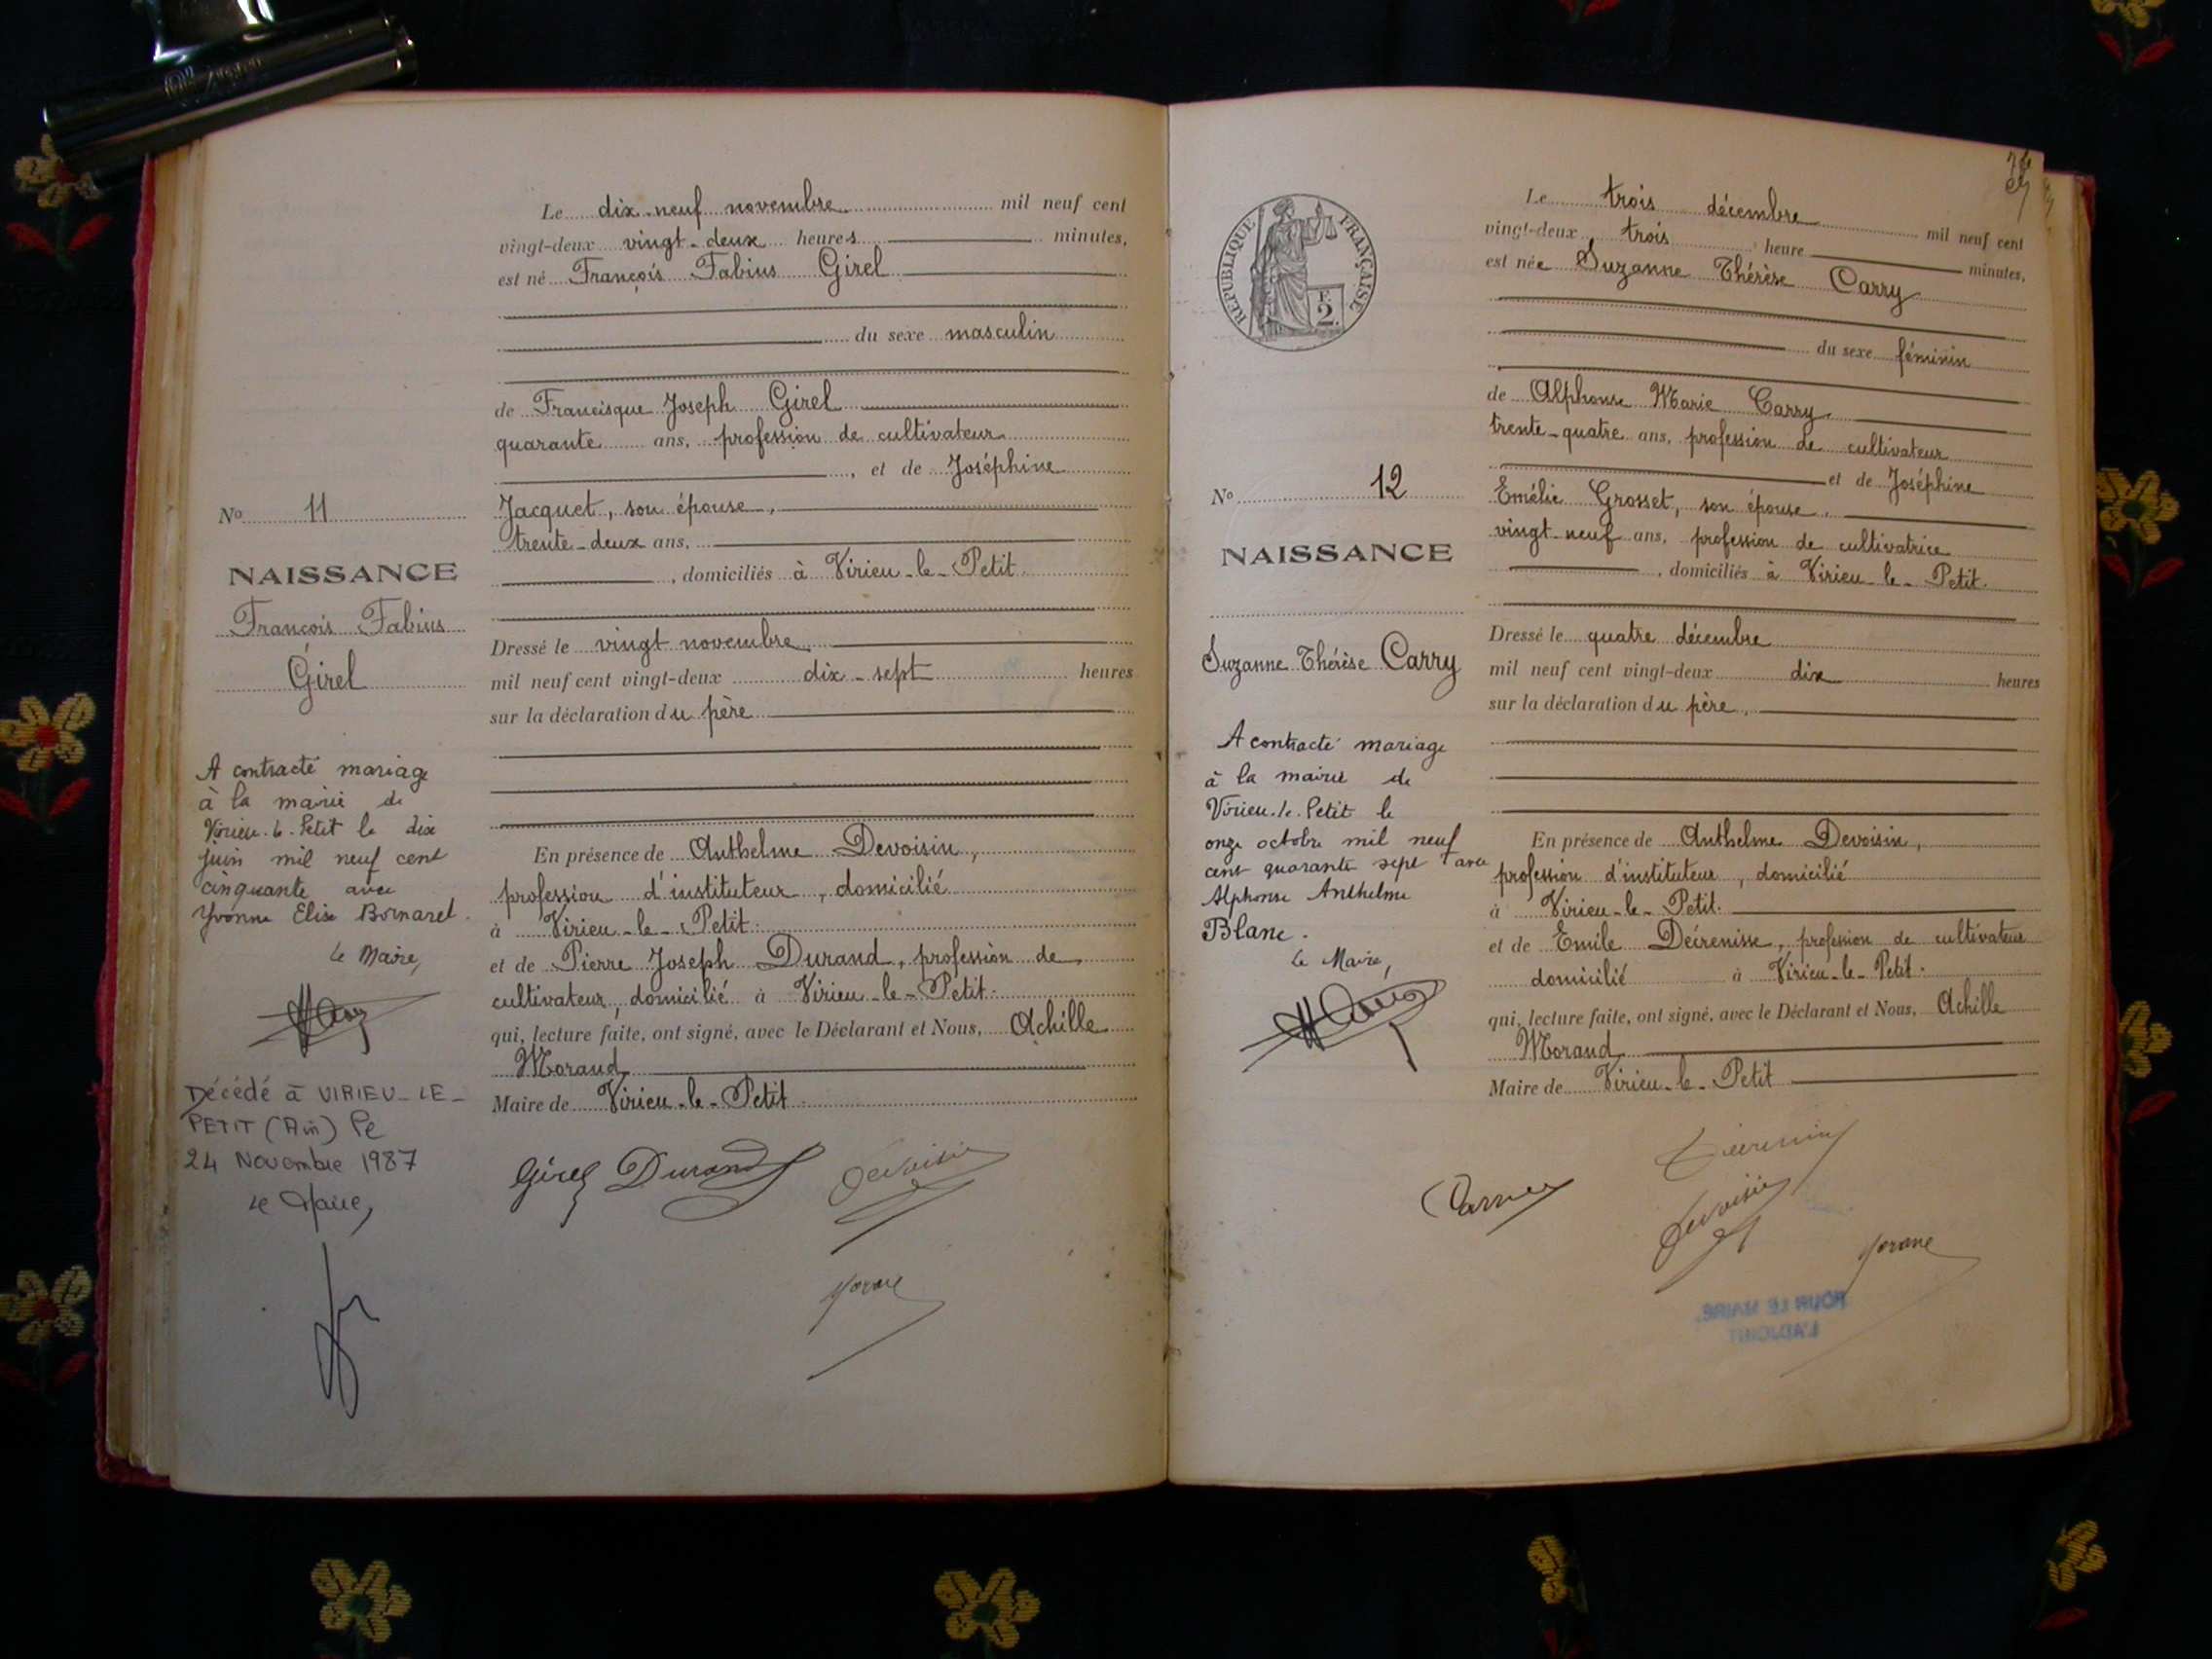 Le dix-neuf novembre mil neuf cent
vingt-deux vingt-deux heures minutes,
est né François Fabius Girel
du sexe masculin
de Francisque Joseph Girel
quarante ans, profession de cultivateur
, et de Joséphine
Jacquet, son épouse,
trente-deux ans,
, domiciliés à Virieu-le-Petit
Dressé le vingt novembre
mil neuf cent vingt-deux dix-sept heures
sur la déclaration du père
En présence de Anthelme Devoisin,
profession d'instituteur, domicilié
à Virieu-le-Petit.
et de Pierre Joseph Durand, profession de
cultivateur, domicilié à Virieu-le-Petit.
qui, lecture faite, ont signé, avec le Déclarant et Nous, Achille
Morand
Maire de Virieu-le-Petit
Girel Durand Devoisin
No 11
NAISSANCE
François Fabius
Girel
A contracté mariage
à la mairie de
Virieu-le-Petit le dix
juin mil neuf cent
cinquante avec
Yvonne Elise Bornarel.
Le Maire,
Décédé à VIRIEU-LE-
PETIT (Ain) le
24 Novembre 1987
Le Maire,
RÉPUBLIQUE FRANÇAISE
F.
2.
Le trois décembre mil neuf cent
vingt-deux trois heure minutes,
est née Suzanne Thérèse Carry
du sexe féminin
de Alphonse Marie Carry
trente-quatre ans, profession de cultivateur
et de Joséphine
Emélie Grosset, son épouse,
vingt-neuf ans, profession de cultivatrice
, domiciliés à Virieu-le-Petit.
Dressé le quatre décembre
mil neuf cent vingt-deux dix heures
sur la déclaration du père,
En présence de Anthelme Devoisin,
profession d'instituteur, domicilié
à Virieu-le-Petit.
et de Emile Deirenisse, profession de cultivateur
domicilié à Virieu-le-Petit.
qui, lecture faite, ont signé, avec le Déclarant et Nous, Achille
Morand
Maire de Virieu-le-Petit
Devoisin
No 12
NAISSANCE
Suzanne Thérèse Carry
A contracté mariage
à la mairie de
Virieu-le-Petit le
onze octobre mil neuf
cent quarante sept avec
Alphonse Anthelme
Blanc.
Le Maire,
POUR LE MAIRE,
L'ADJOINT